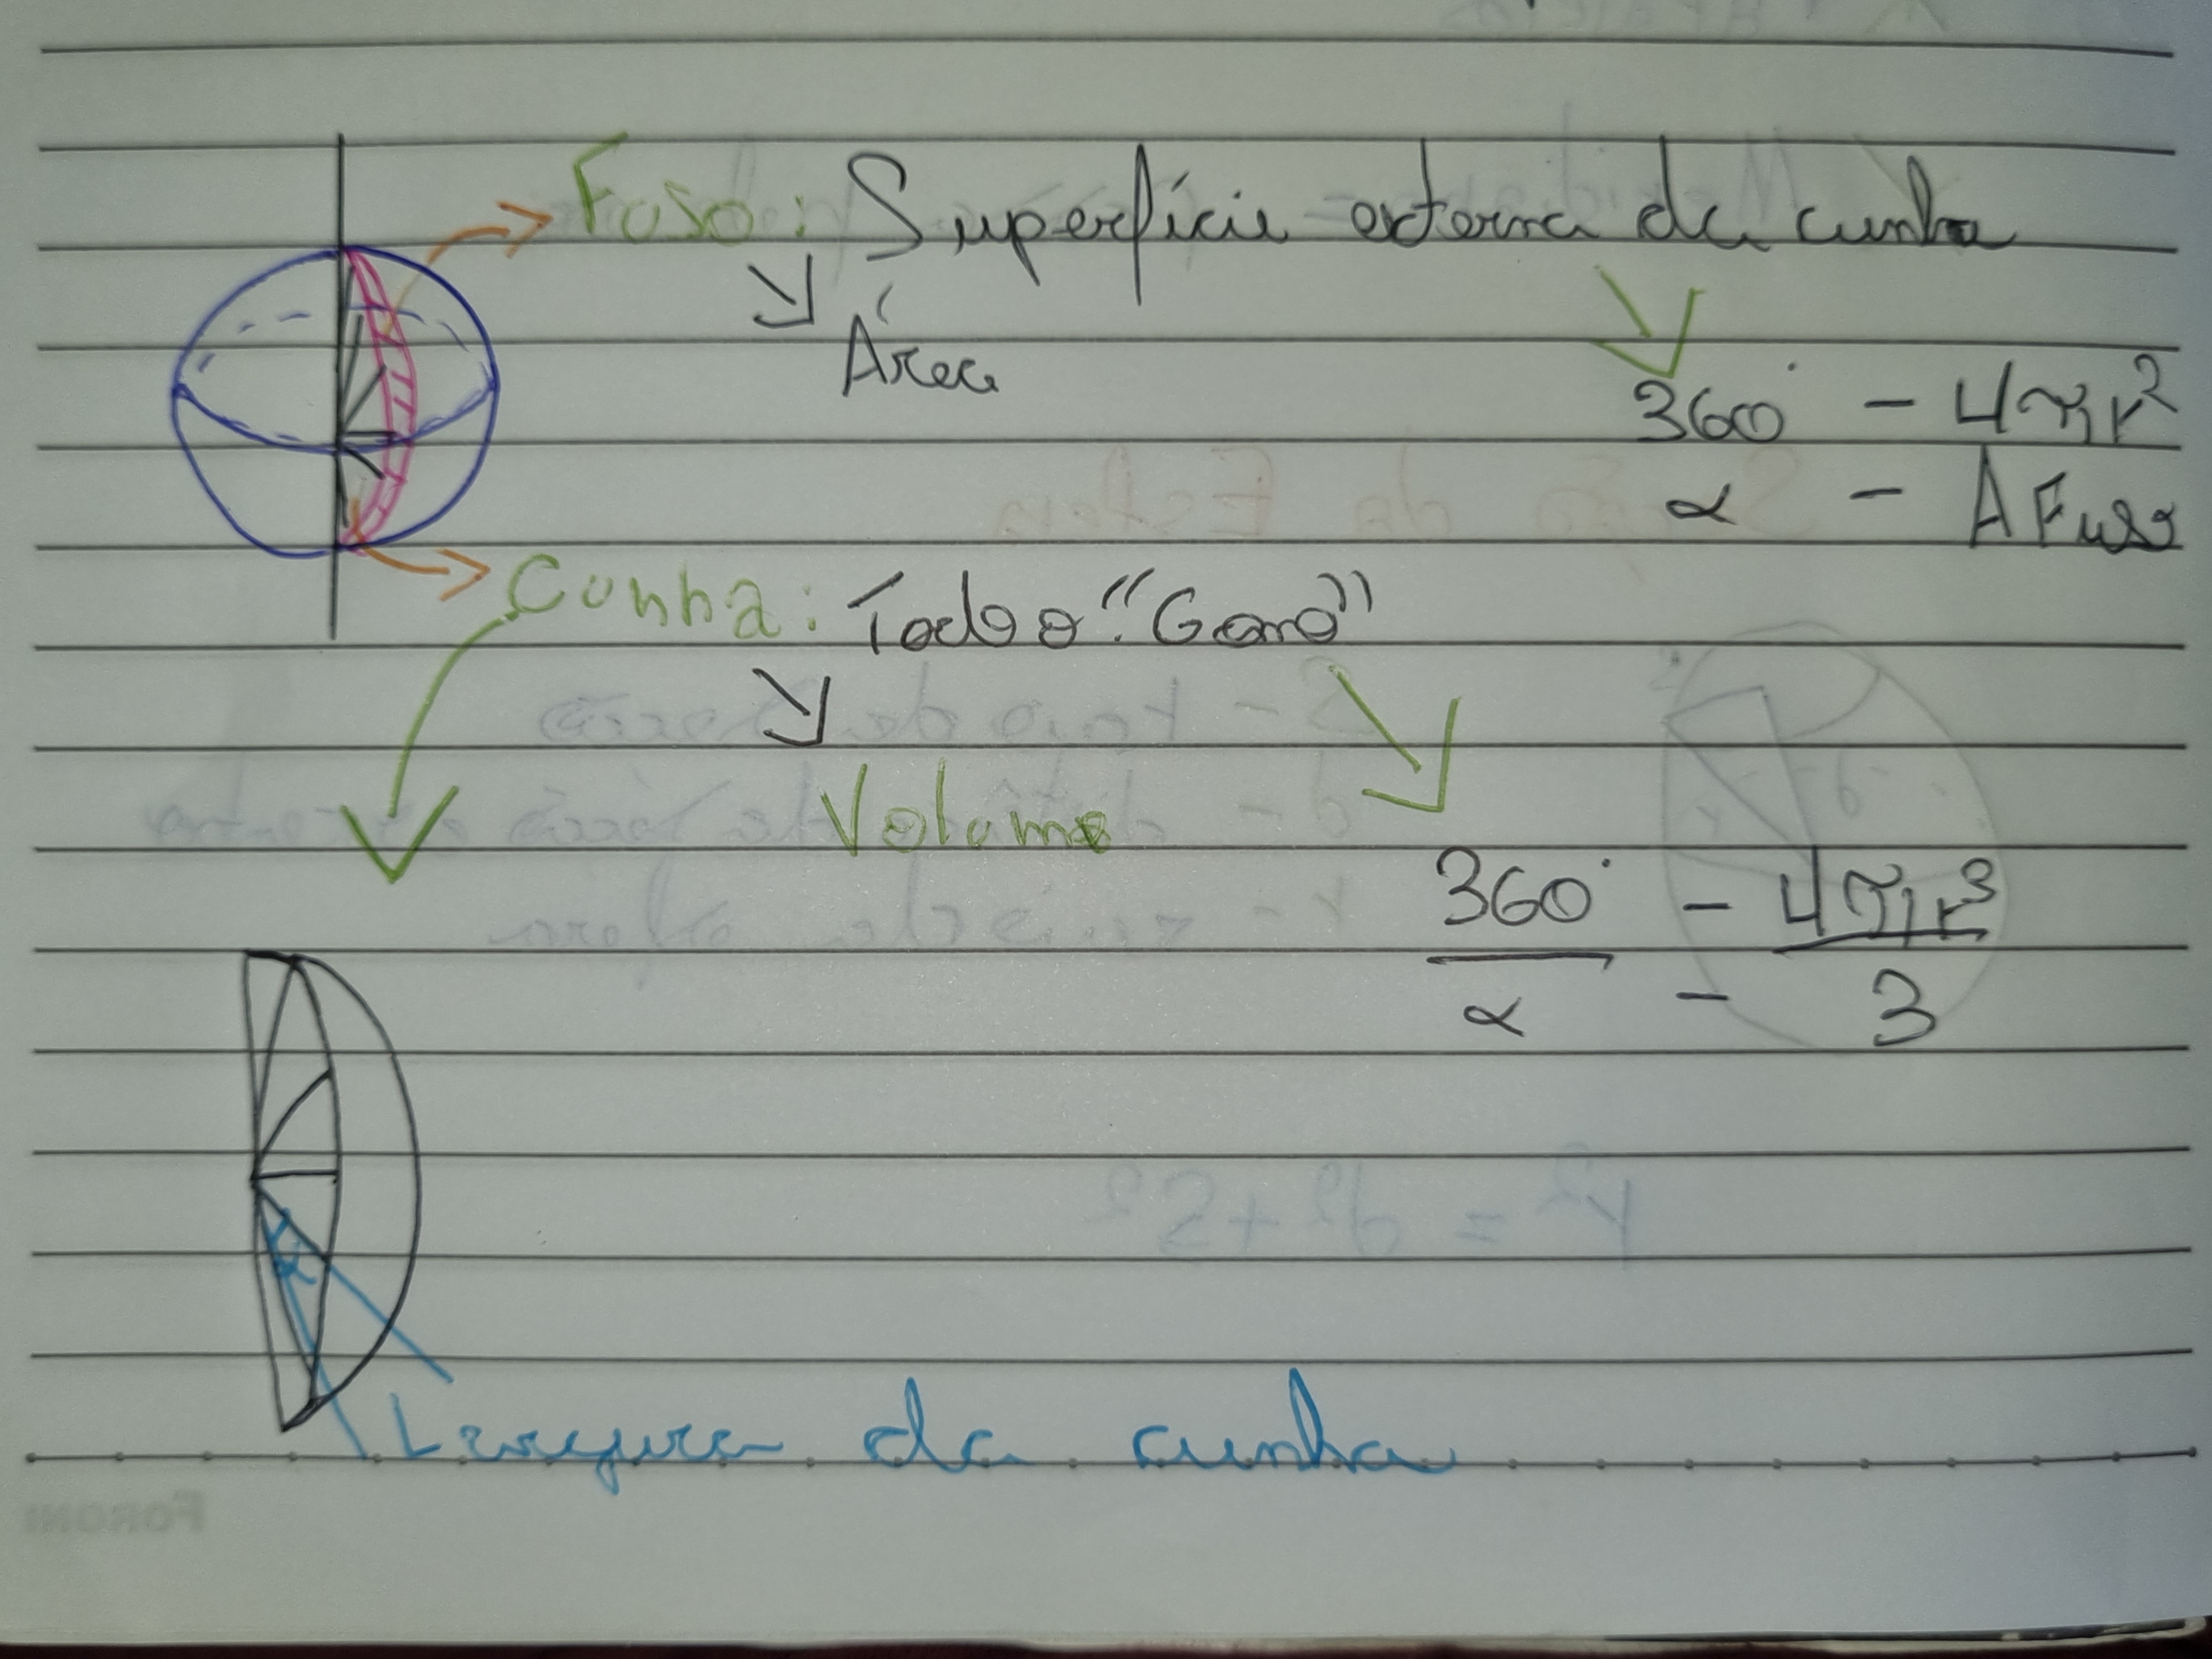 Fuso: Superfície externa da cunha
Área
360° - 4πR²
α - A Fuso
Cunha: Todo o "Gomo"
Volume
360° - 4πR³
α - 3
α
Largura da cunha
FORONI